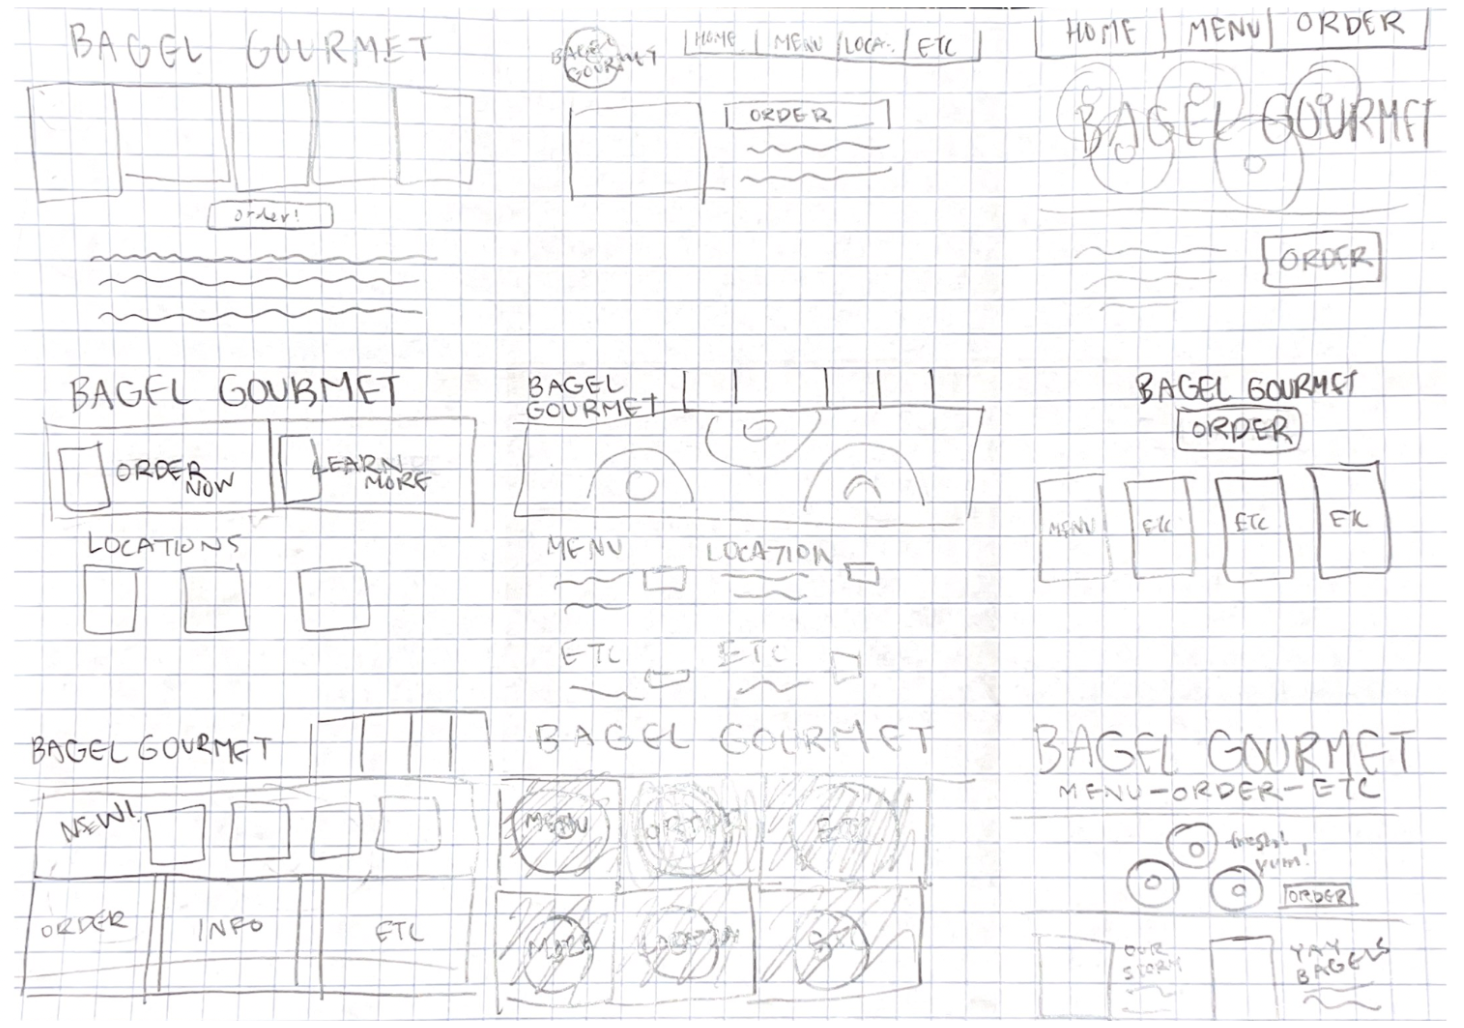 BAGEL GOURMET
order!
BAGEL GOURMET
HOME MENU LOCA. ETC
ORDER
HOME MENU ORDER
BAGEL GOURMET
ORDER
BAGEL GOURMET
ORDER NOW
LEARN MORE
LOCATIONS
BAGEL
GOURMET
MENU LOCATION
ETC ETC
BAGEL GOURMET
ORDER
MENU ETC ETC ETC
BAGEL GOURMET
NEW!
ORDER INFO ETC
BAGEL GOURMET
MENU ORDER ETC
MORE LOCATION ETC
BAGEL GOURMET
MENU-ORDER-ETC
fresh!
yum!
ORDER
OUR
STORY
YAY
BAGELS